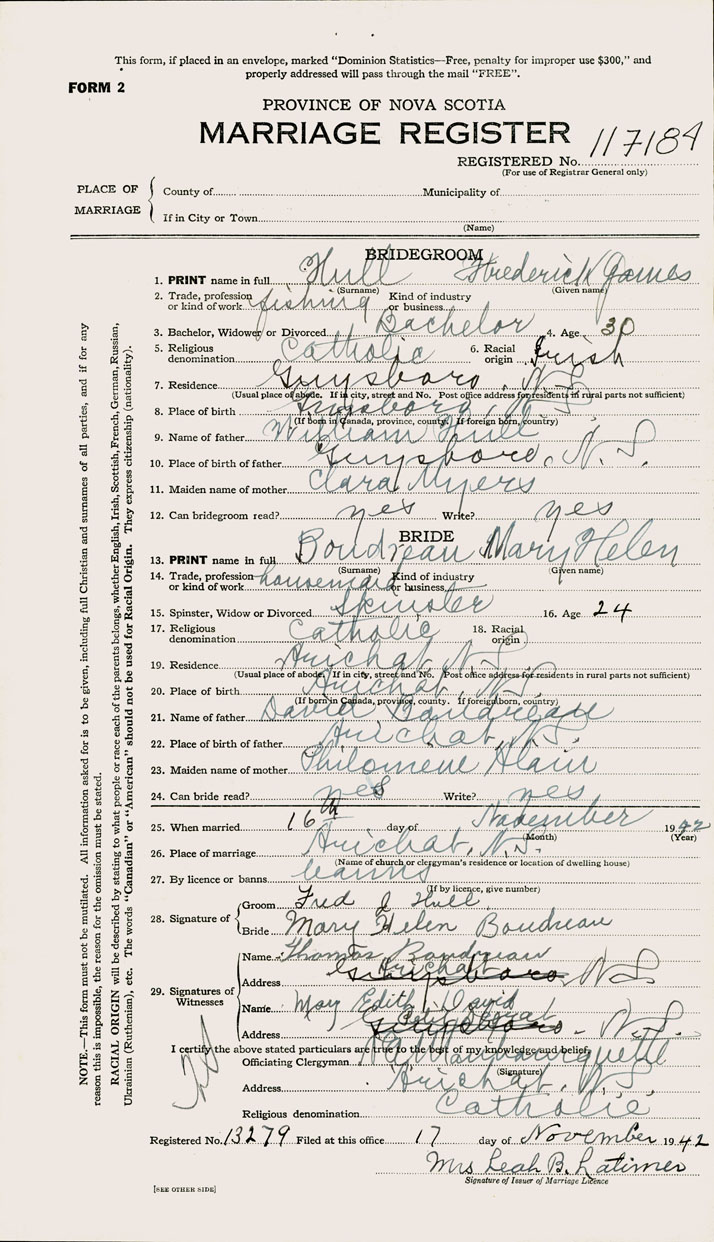 This form, if placed in an envelope, marked "Dominion Statistics—Free, penalty for improper use $300," and
properly addressed will pass through the mail "FREE".
FORM 2
PROVINCE OF NOVA SCOTIA
MARRIAGE REGISTER
117184
REGISTERED No.
(For use of Registrar General only)
PLACE OF MARRIAGE
County of Municipality of
If in City or Town
(Name)
BRIDEGROOM
1. PRINT name in full Hull Frederick James
(Surname) (Given name)
2. Trade, profession or kind of work fishing Kind of industry or business
3. Bachelor, Widower or Divorced Bachelor 4. Age 30
5. Religious denomination Catholic 6. Racial origin Irish
7. Residence Guysboro, N.S.
(Usual place of abode. If in city, street and No. Post office address for residents in rural parts not sufficient)
8. Place of birth Guysboro, N.S.
(If born in Canada, province, county. If foreign born, country)
9. Name of father William Hull
10. Place of birth of father Guysboro, N.S.
11. Maiden name of mother Clara Myers
12. Can bridegroom read? yes Write? yes
BRIDE
13. PRINT name in full Boudreau Mary Helen
(Surname) (Given name)
14. Trade, profession or kind of work housemaid Kind of industry or business
15. Spinster, Widow or Divorced Spinster 16. Age 24
17. Religious denomination Catholic 18. Racial origin
19. Residence Arichat, N.S.
(Usual place of abode. If in city, street and No. Post office address for residents in rural parts not sufficient)
20. Place of birth Arichat, N.S.
(If born in Canada, province, county. If foreign born, country)
21. Name of father David Boudreau
22. Place of birth of father Arichat, N.S.
23. Maiden name of mother Philomene
24. Can bride read? yes Write? yes
25. When married 16th day of November 1942
(Month) (Year)
26. Place of marriage Arichat, N.S.
(Name of church or clergyman's residence or location of dwelling house)
27. By licence or banns banns
(If by licence, give number)
28. Signature of Groom Fred J Hull
Bride Mary Helen Boudreau
29. Signatures of Witnesses
Name Thomas Boudreau
Address Guysboro Arichat N.S.
Name Mary Edith David
Address Guysboro N.S.
I certify the above stated particulars are true to the best of my knowledge and belief.
Officiating Clergyman
(Signature)
Address Arichat, N.S.
Religious denomination Catholic
Registered No. 13279 Filed at this office 17 day of November 1942
Mrs Leah B. Latimer
Signature of Issuer of Marriage Licence
[SEE OTHER SIDE]
NOTE.—This form must not be mutilated. All information asked for is to be given, including full Christian and surnames of all parties, and if for any
reason this is impossible, the reason for the omission must be stated.
RACIAL ORIGIN will be described by stating to what people or race each of the parents belongs, whether English, Irish, Scottish, French, German, Russian,
Ukrainian (Ruthenian), etc. The words "Canadian" or "American" should not be used for Racial Origin. They express citizenship (nationality).